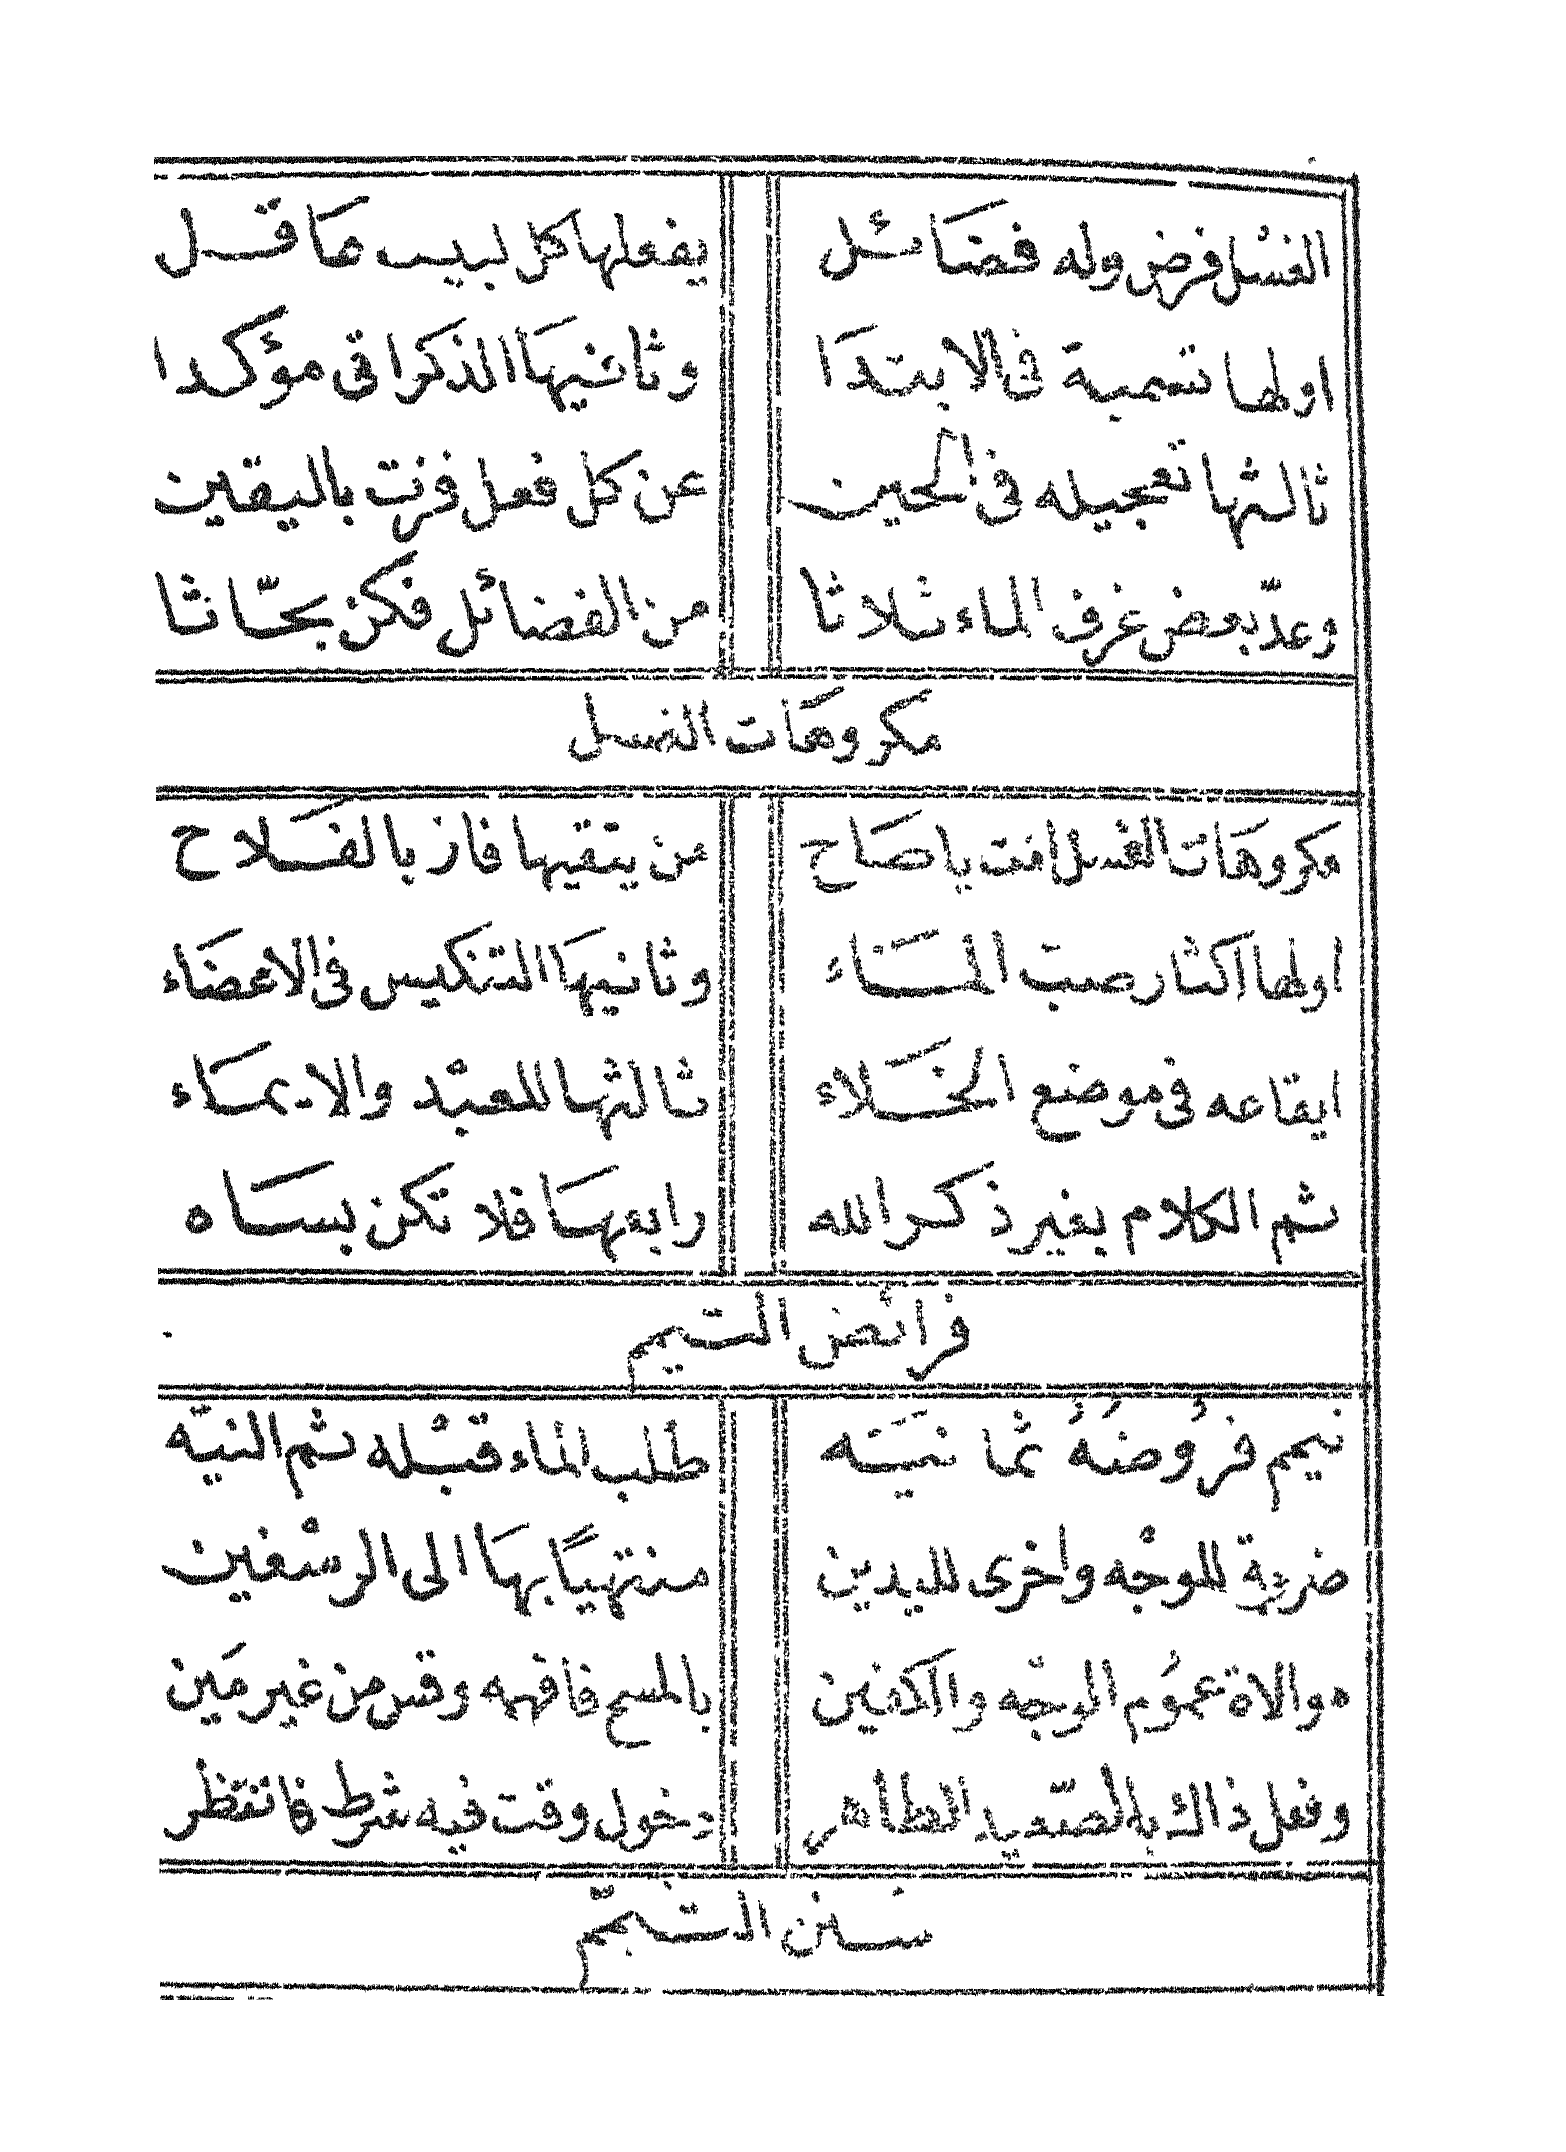 الغسل فرض وله فضائل يفعلها كل لبيب عاقل
اولها تسمية فى الابتدا وثانيها الذكرا قى مؤكدا
ثالثها تعجيله فى الحين عن كل فعل فزت باليقين
وعدّ بعض غرف الماء ثلاثا من الفضائل فكن بحّاثا
مكروهات الغسل
مكروهات الغسل افت يا صاح من يتقيها فاز بالفلاح
اولها إكثار صب الماء وثانيها التنكيس فى الاعضاء
ايقاعه فى موضع الخلاء ثالثها للعبْد والايماء
ثم الكلام بغير ذكر الله رابعها فلا تكن بساه
فرائض التيمم
تيمم فرُوضهُ ثمانيَته طلب الماء قبْله ثم النيّه
ضربة للوجْه واخرى لليدين منتهيًا بها الى الرسْغين
موالاة عمُوم الوجْه والكفين بالمسح فافهمه وقس من غير مَين
وفعل ذاك بالصّعيد الطاهر دخول وقت فيه شرط فانتظر
سنن التيمّم